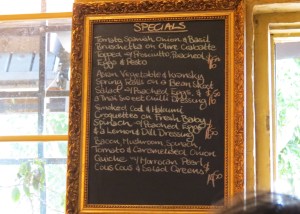 SPECIALS
Tomato, Spanish Onion & Basil
Bruschetta on Olive Ciabatta
Topped w Prosciutto, Poached
Eggs & Pesto
Asian Vegetable &
Spring Rolls on a Bean Shoot
Salad w Poached Eggs &
a Thai Sweet Chilli Dressing
Smoked Cod & Haloumi
Croquettes on Fresh Baby
Spinach w Poached Eggs
& a Lemon & Dill Dressing
Bacon, Mushroom, Spinach,
Tomato & Caramelised Onion
Quiche w Moroccan Pearl
Cous Cous & Salad Greens